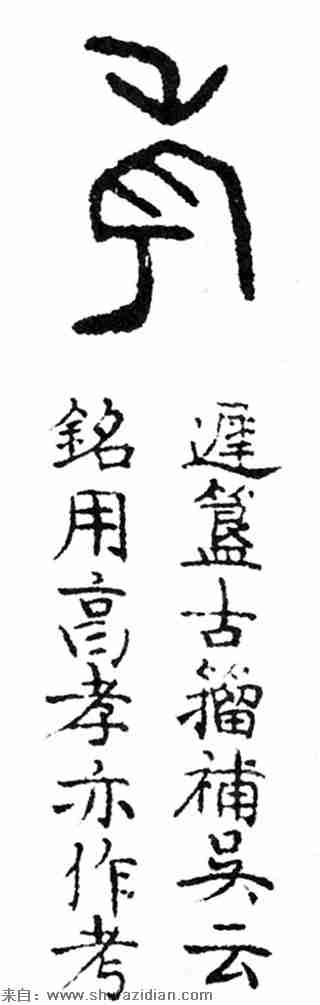 遲簋古籀補吳云
銘用亯孝亦作考
来自：www.shufazidian.com